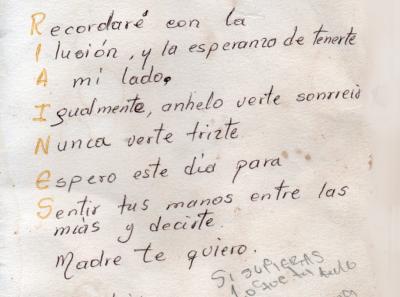 Recordaré con la
Ilusión, y la esperanza de tenerte
A mi lado.
Igualmente, anhelo verte sonrreis
Nunca verte trizte
Espero este día para
Sentir tus manos entre las
mías y decirte.
Madre te quiero.
SI SUPIERAS